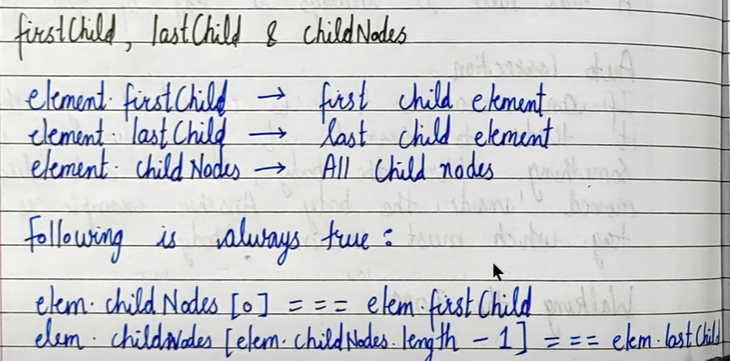 firstChild, lastChild & childNodes
element. firstChild → first child element
element. lastChild → last child element
element. childNodes → All Child nodes
Following is always true :
elem. childNodes [0] = = = elem.firstChild
elem. childNodes [elem. childNodes. length - 1] = = = elem.lastChild